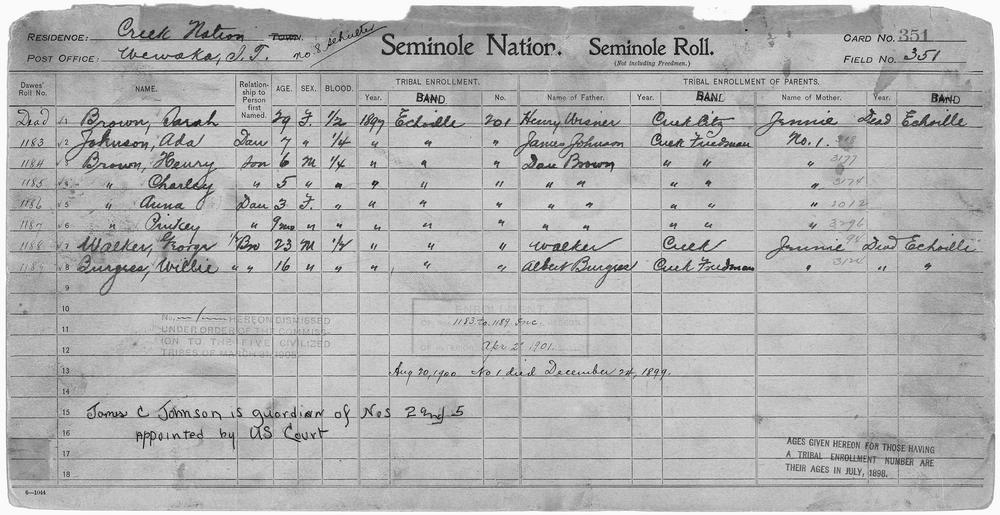 RESIDENCE: Creek Nation TOWN.
POST OFFICE: Wewoka, I.T. no 8 Schulter
Seminole Nation. Seminole Roll.
(Not including Freedmen.)
CARD NO. 351
FIELD NO. 351
Dawes' Roll No. NAME. Relationship to Person first Named. AGE. SEX. BLOOD. TRIBAL ENROLLMENT. TRIBAL ENROLLMENT OF PARENTS.
Year. BAND No. Name of Father. Year. BAND Name of Mother. Year. BAND
Dead √1 Brown, Sarah 29 F. 1/2 1897 Echoille 201 Henry Creek City Jennie Dead Echoille
1183 √2 Johnson, Ada Dau 7 " 1/4 " " " James Johnson Creek Freedman No. 1.
1184 √3 Brown, Henry Son 6 M 1/4 " " " Dan Brown " " " 3177
1185 √4 " Charley " 5 " " " " " " " " " " 3174
1186 √5 " Anna Dau 3 F. " " " " " " " " " 2012
1187 √6 " " 9mo " " " " " " " " " " 3296
1188 √7 Walker, George 1/2 Bro 23 M 1/2 " " " Walker Creek Jennie Dead Echoille
1189 √8 Burgess, Willie " " 16 " " " " " Albert Burgess Creek Freedman " " "
9
10
No. 1 HEREON DISMISSED
ENROLLMENT
11
UNDER ORDER OF THE COMMISSION TO THE FIVE CIVILIZED
1183 to 1189 Inc.
12
TRIBES OF MARCH 31, 1905.
Apr 2 1901.
13 Aug 20, 1900 No 1 died December 24, 1899.
14
15 James C Johnson is guardian of Nos 2 and 5
16 appointed by US Court
17
18
AGES GIVEN HEREON FOR THOSE HAVING
A TRIBAL ENROLLMENT NUMBER ARE
THEIR AGES IN JULY, 1898.
6—1044